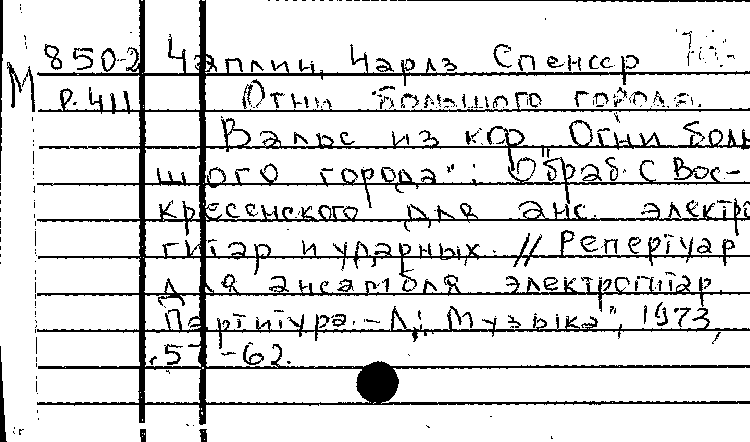 850-2 Чаплин, Чарлз Спенсер
М Р.411 Огни большого города.
Вальс из кф „Огни боль
шого города": Обраб. С Вос-
кресенского для анс. электро
гитар и ударных. // Репертуар
для ансамбля электрогитар.
Партитура. – Л,: Музыка", 1973,
.57-62.